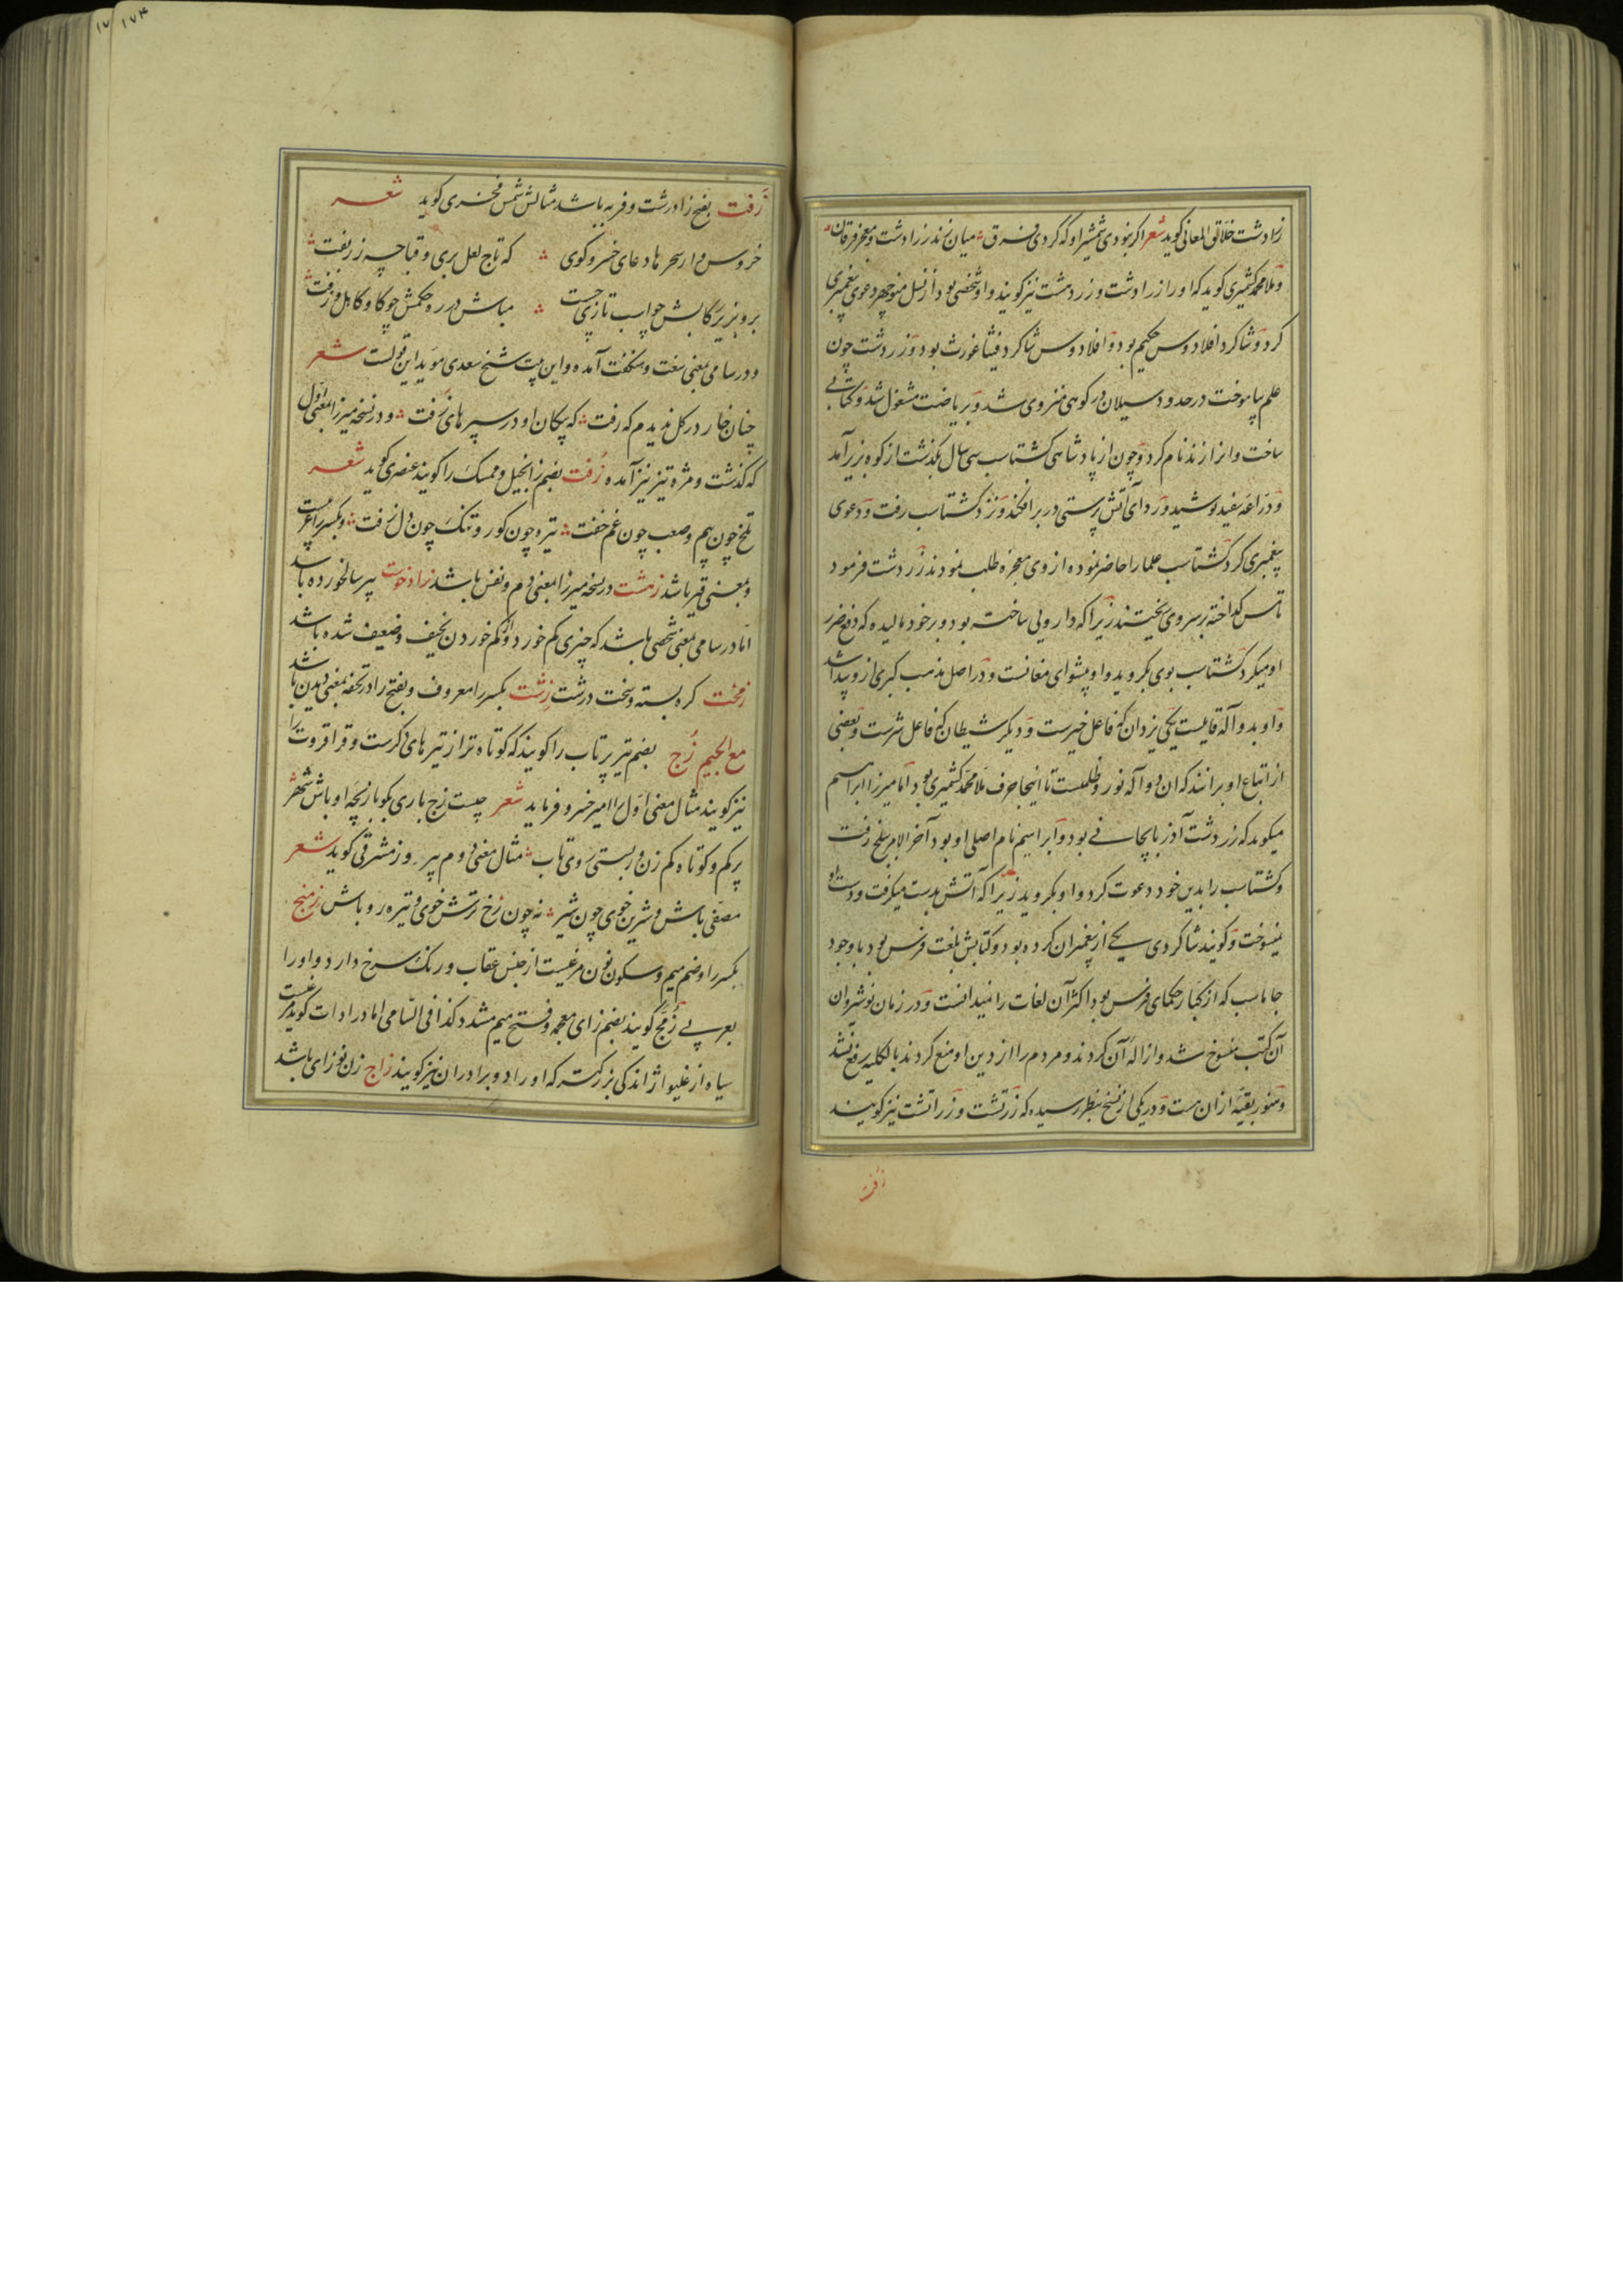 زرادشت خلاق المعانی کوید شعر اکر نبودی شمشیر او که کردی فرق میان زند زرادشت و معجز فرقان
و ملا محمد کشمیری کوید که او را زرادشت و زردهشت نیز کویند و او شخصی بود از نسل منوچهر دعوی پیغمبری
کرد و شاکرد افلادوس حکیم بود و افلادوس شاکرد فیثاغورث بود و زردشت چون
علم بیاموخت در حدود سبلان در کوهی منزوی شد و بریاضت مشغول شد و کتابی
ساخت و انرا زند نام کرد و چون از پادشاهی کشتاسب سی سال بکذشت از کوه بزیر آمد
و دراعه سفید پوشید و ردای آتش پرستی در بر افکند و نزد کشتاسب رفت و دعوی
پیغمبری کرد کشتاسب علما را حاضر نموده از وی معجزه طلب نمودند زردشت فرمود
تا مس کداخته بر سر وی ریختند زیرا که دارویی ساخته بود و بر خود مالیده که دفع ضرر
او میکرد کشتاسب بوی بکروید و او پیشوای مغانست و در اصل مذهب کبری از و پیدا شد
و او بدو آله قایلست یکی یزدان که فاعل خیرست و دیکر شیطان که فاعل شرست و بعضی
از اتباع او برانند که ان دو آله نور و ظلمست تا اینجا حرف ملا محمد کشمیری بود اما میرزا ابراهیم
میکوید که زردشت آذربایجانی بود و ابراهیم نام اصلی او بود آخر الامر ببلخ رفت
و کشتاسب را بدین خود دعوت کرد و او بکروید زیرا که آتش بدست میکرفت و دست او
نمیسوخت و کویند شاکردی یکی از پیغمبران کرده بود و کتابش بلغت فرس بود با وجود
جاماسب که از کبار حکمای فرس بود اکثر آن لغات را نمیدانست و در زمان نوشروان
آن کتب منسوخ شد و ازاله آن کردند و مردم را از دین او منع کردند بالکلیه رفع نشد
و هنوز بقیه از ان هست و در یکی از نسخ بنظر رسیده که زرتشت و زراتشت نیز کویند
زفت
۱۷۴
۱۷
زفت بفتح زا درشت و فربه باشد مثالش شمس فخری کوید شعر
خروس وار سحرها دعای خسرو کوی که تاج لعل بری و قباچه زربفت
برو بزیر رکابش چو اسب تازی جست مباش در ره حکمش چو کاو کاهل و زفت
و در سامی بمعنی سفت و هنکفت آمده و این بیت شیخ سعدی موید این قولست شعر
چنان خار در کل ندیدم که رفت که پیکان او در سپرهای زفت و در نسخه میرزا بمعنی اول
که کذشت و مزه تیز نیز آمده زفت بضم زا بخیل و ممسک را کویند عنصری کوید شعر
تلخ چون بیم و صعب چون غم خفت تیره چون کور و تنک چون دل زفت و بکسر زا
و بمعنی قیر باشد زهشت در نسخه میرزا بمعنی دم و نفس باشد زاد خوست پیر سالخورده باشد
اما در سامی بمعنی شخصی باشد که چیزی کم خورد و از کم خوردن نحیف و ضعیف شده باشد
زمخت کره بسته و سخت درشت زشت بکسر زا معروف و بفتح زا در تحفه بمعنی دیدن باشد
مع الجیم زج بضم تیر پرتاب را کویند که کوتاه تر از تیرهای دکرست و قراقروت را
نیز کویند مثال معنی اول را امیر خسرو فرماید شعر چیست زج باری بکو بازیچه اوباش شهر
پرکم و کوتاه کم زن در بستی سوی تاب مثال معنی دوم پیروز مشرقی کوید شعر
مصفی باش و شیرین خوی چون شیر نه چون زخ ترش خوی و تیره رو باش زمنج
بکسر زا و ضم میم و سکون نون مرغیست از جنس عقاب و رنک سرخ دارد و او را
بعربی زمج کویند بضم زای معجمه و فتح میم مشدد کذا فی السامی اما در ادات کوید مرغیست
سیاه از غلیواژ اندکی بزرکتر که او را دو برادران نیز کویند زاج زن نوزای باشد